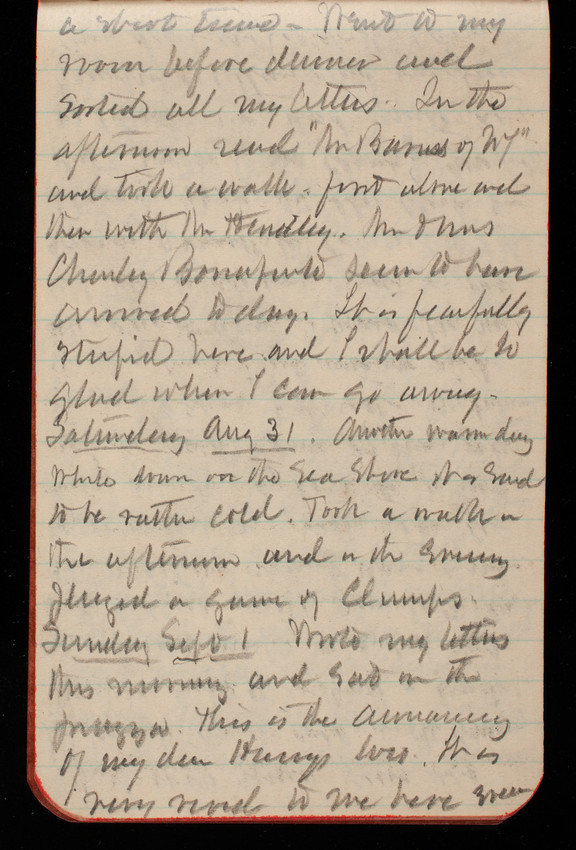 a short time - Went to my
room before dinner and
sorted all my letters. In the
afternoon read "Mr Barnes of NY"
and took a walk - first alone and
then with Mr Hendley. Mr & Mrs
Charley Bonaparte seem to have
arrived to day. It is fearfully
stupid here and I shall be so
glad when I can go away -
Saturday Aug 31. Another warm day
while down on the Sea Shore it is said
to be rather cold. Took a walk in
the afternoon and in the evening
played a game of Clumps.
Sunday Sept 1 Wrote my letters
this morning and sat on the
piazza. This is the anniversary
of my dear Harrys It is
very to me here even